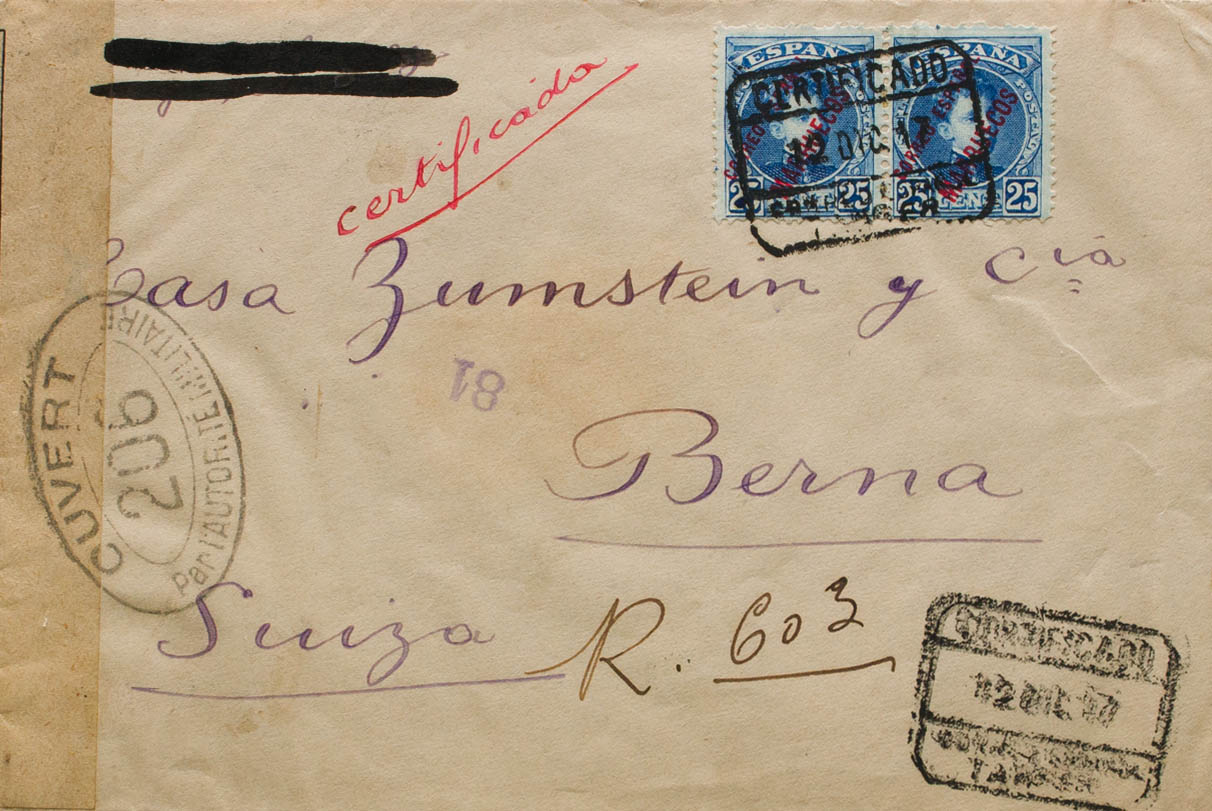 certificada
ESPAÑA ESPAÑA
CORREO ESPAÑOL CORREO ESPAÑOL
MARRUECOS MARRUECOS
25 CENT 25 25 CENT 25
CERTIFICADO
12 DIC 17
TANGER
Casa Zumstein y Cia
81
Berna
OUVERT
206
Par l'AUTORITÉ MILITAIRE
Suiza
R. 603
CERTIFICADO
12 DIC 17
TANGER